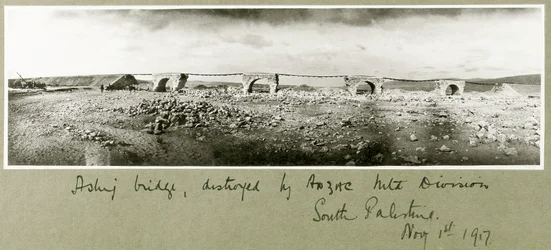 Asluj bridge, destroyed by Anzac Mtd Division
South Palestine.
Nov 1st 1917